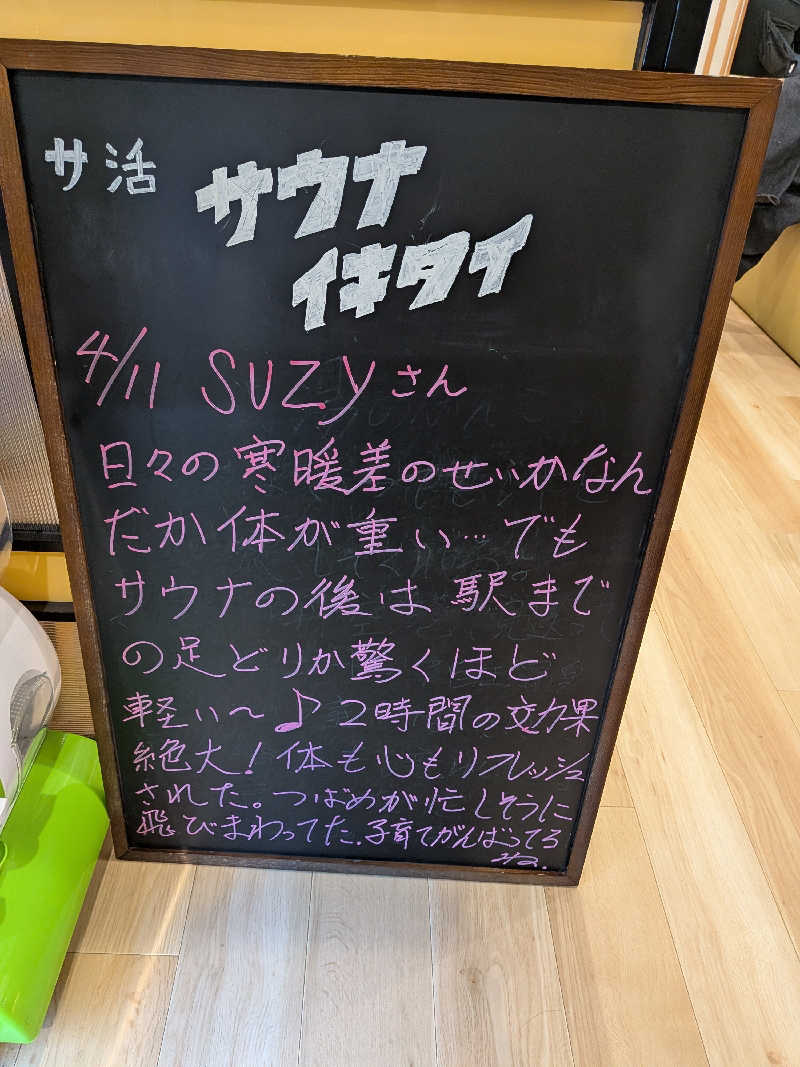 サ活
サウナ
イキタイ
4/11 SUZYさん
日々の寒暖差のせいかなん
だか体が重い…でも
サウナの後は駅まで
の足どりが驚くほど
軽い〜♪2時間の効果
絶大!体も心もリフレッシュ
された。つばめが忙しそうに
飛びまわってた.子育てがんばってる